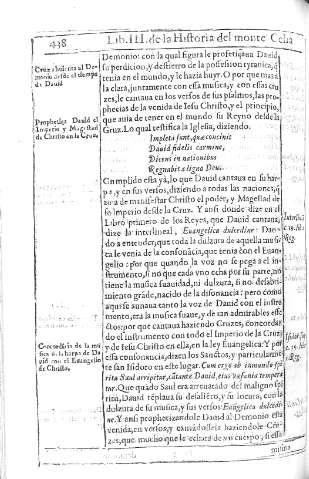 438
Lib. III. de la Historia del monte Celia
Demonio: con la qual figura le profetiçaua Dauid,
su perdicion, y destierro de la possession tyranica, q̃
tenia en el mundo, y le hazia huyr. O por que mas a
la clara, juntamente con essa musica, y con essas cru
zes, le cantaua en los versos de sus psalmos, las pro-
phecias de la venida de Iesu Christo, y el principio,
que auia de tener en el mundo su Reyno desde la
Cruz. Lo qual testifica la Iglesia, diziendo.
Impleta sunt, quæ concinit
Dauid fidelis carmine,
Dicens in nationibus
Regnabit a ligno Deus.
Cumplido esta ya, lo que Dauid cantaua en su har-
pa, y en sus versos, diziendo a todas las naciones, q̃
auia de manifestar Christo el poder, y Magestad de
su Imperio desde la Cruz. Y ansi donde dize en el
Libro primero de los Reyes, que Dauid cantaua,
dize la interlineal, Euangelica dulcedine: Dan-
do a entender, que toda la dulzura de aquella musi
ca le venia de la consonãcia, que tenia con el Euan-
gelio: por que quando la voz no se pega a el ins-
trumento, si no que cada vno echa por su parte, no
tiene la musica suauidad, ni dulzura, si no desabri-
miento grãde, nacido de la disonancia: pero como
aquesta aunaua tanto la voz de Dauid con el instru
mento, era la musica suaue, y de tan admirables effe
ctos: por que cantaua haziendo Cruzes, concordan-
do el instrumento con todo el Imperio de la Cruz
y de Iesu Christo en ella, en la ley Euangelica: Y por
essa consonancia, dizen los Sanctos, y particularmẽ
te san Isidoro en este lugar. Cum ergo ob immundo spi
ritu Saul arriperetur,
Que quãdo Saul era arrebatado del maligno spi
ritu, Dauid
dulzura de su musica, y sus versos Euãgelica dulcedi
ne. Y ansi prophetizandole Dauid en su harpa esta
venida, en versos, y cantãdosela haziendole Cru-
zes, que mucho que le echara de su cuerpo, si esse
mismo
Dauid
Prophetiça Dauid el
Imperio y Magestad
de Christo en la Cruz
Concordãcia de la mu
sica a la harpa de Da
uid con el Euangelio
de Christo.
Reg.